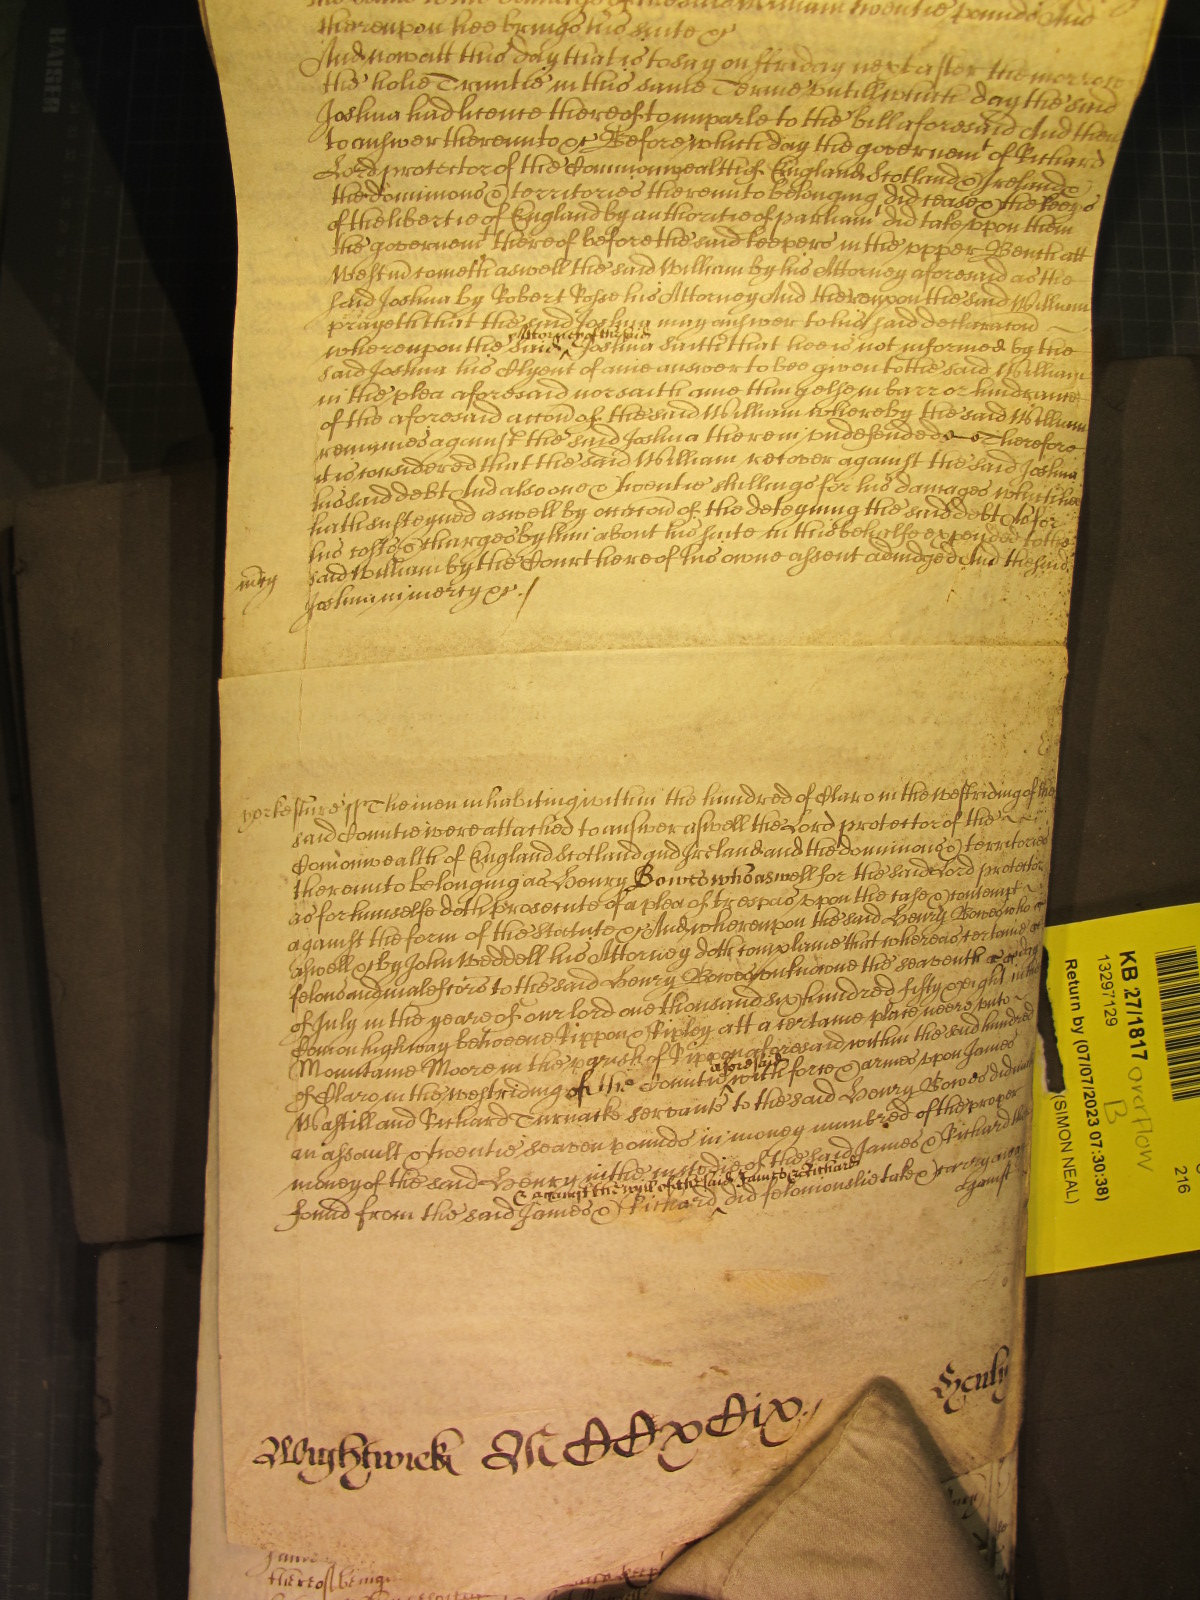 thereupon hee brings his suite &c
And now att this day that is to say on ffriday next after the morrow
the holie Trinitie in this same Terme untill which day the said
Joshua had licence thereof to imparle to the bill aforesaid And then
to answer thereunto &c Before which day the governemt of Richard
Lord protector of the Commonwealth of England Scotland & Ireland &
the dominions & territories thereunto belonging did cease & the keepers
of the libertie of England by authoritie of parliamt did take uppon them
the governemt thereof before the said keepers in the upper Bench att
Westmr cometh aswell the said William by his Attorney aforesaid as the
said Joshua by Robert Rosse his Attorney And thereupon the said William
prayeth that the said Joshua may answer to his said declaracon
Attorney of the said
whereupon the said ^ Joshua saith that hee is not informed by the
said Joshua his Clyent of anie answer to bee given to the said William
in the plea aforesaid nor saith anie thing else in barr or hindrance
of the aforesaid accon of the said William whereby the said William
remaines against the said Joshua therein undefended &c Therefore
it is considered that the said William recover against the said Joshua
his said debt And also one & twentie shillings for his damages which hee
hath susteyned aswell by occasion of the deteyning the said debt As for
his costs & charges by him about his suite in this behalfe expended to the
said William by the Court here of his owne assent adiudged And the said
mcy
Joshua in mercy &c./
Yorkeshire ss The men inhabiting within the hundred of Claro in the westriding of the
said Countie were attached to answer aswell the Lord protector of the
Comonwealth of England Scotland and Ireland and the dominions & territories
thereunto belonging as Henry Bowes who aswell for the said Lord protector
as for himselfe doth prosecute of a plea of trespas upon the case & contempt
against the form of the Statute &c And whereupon the said Henry Bowes who
aswell &c by John Weddell his Attorney doth complaine that whereas certaine
felons and malefctors to the said Henry Bowes unknowne the seaventh day
of July in the yeare of our lord one thousand six hundred fifty & eight in the
Comon high way betweene Rippon & Ripley att a certaine place neere unto
Mountaine Moore in the parish of Rippon aforesaid within the said hundred
aforesaid
of Claro in the westriding of the Countie ^ with force & armes upon James
Mastill and Richard Turnacke servants to the said Henry Bowes did make
an assault & twentie seaven pounds in money numbred of the proper
money of the said Henry in the custodie of the said James & Richard then
& against the will of the said James & Richard
found from the said James & Richard ^ did feloniouslie take & carry away
against
Wightwick MCCxCix./
Henly
thereof being
KB 27/1817 overflow
B
13297129
Return by (07/07/2023 07:30:38)
(SIMON NEAL)
216